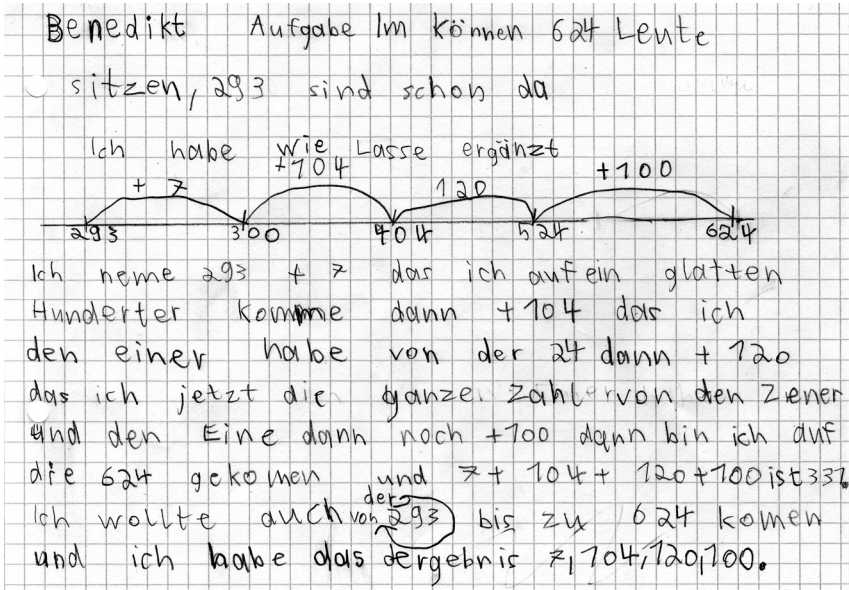 Benedikt Aufgabe Im können 624 Leute
sitzen, 293 sind schon da
Ich habe wie Lasse ergänzt
+ 7 +104 120 +100
293 300 404 524 624
Ich neme 293 + 7 das ich auf ein glatten
Hunderter komme dann +104 das ich
den einer habe von der 24 dann + 120
das ich jetzt die ganze Zahl von den Zener
und den Eine dann noch +100 dann bin ich auf
die 624 gekomen und 7+ 104+ 120+100 ist 331.
Ich wollte auch von der 293 bis zu 624 komen
und ich habe das ergebnis 7,104,120,100.